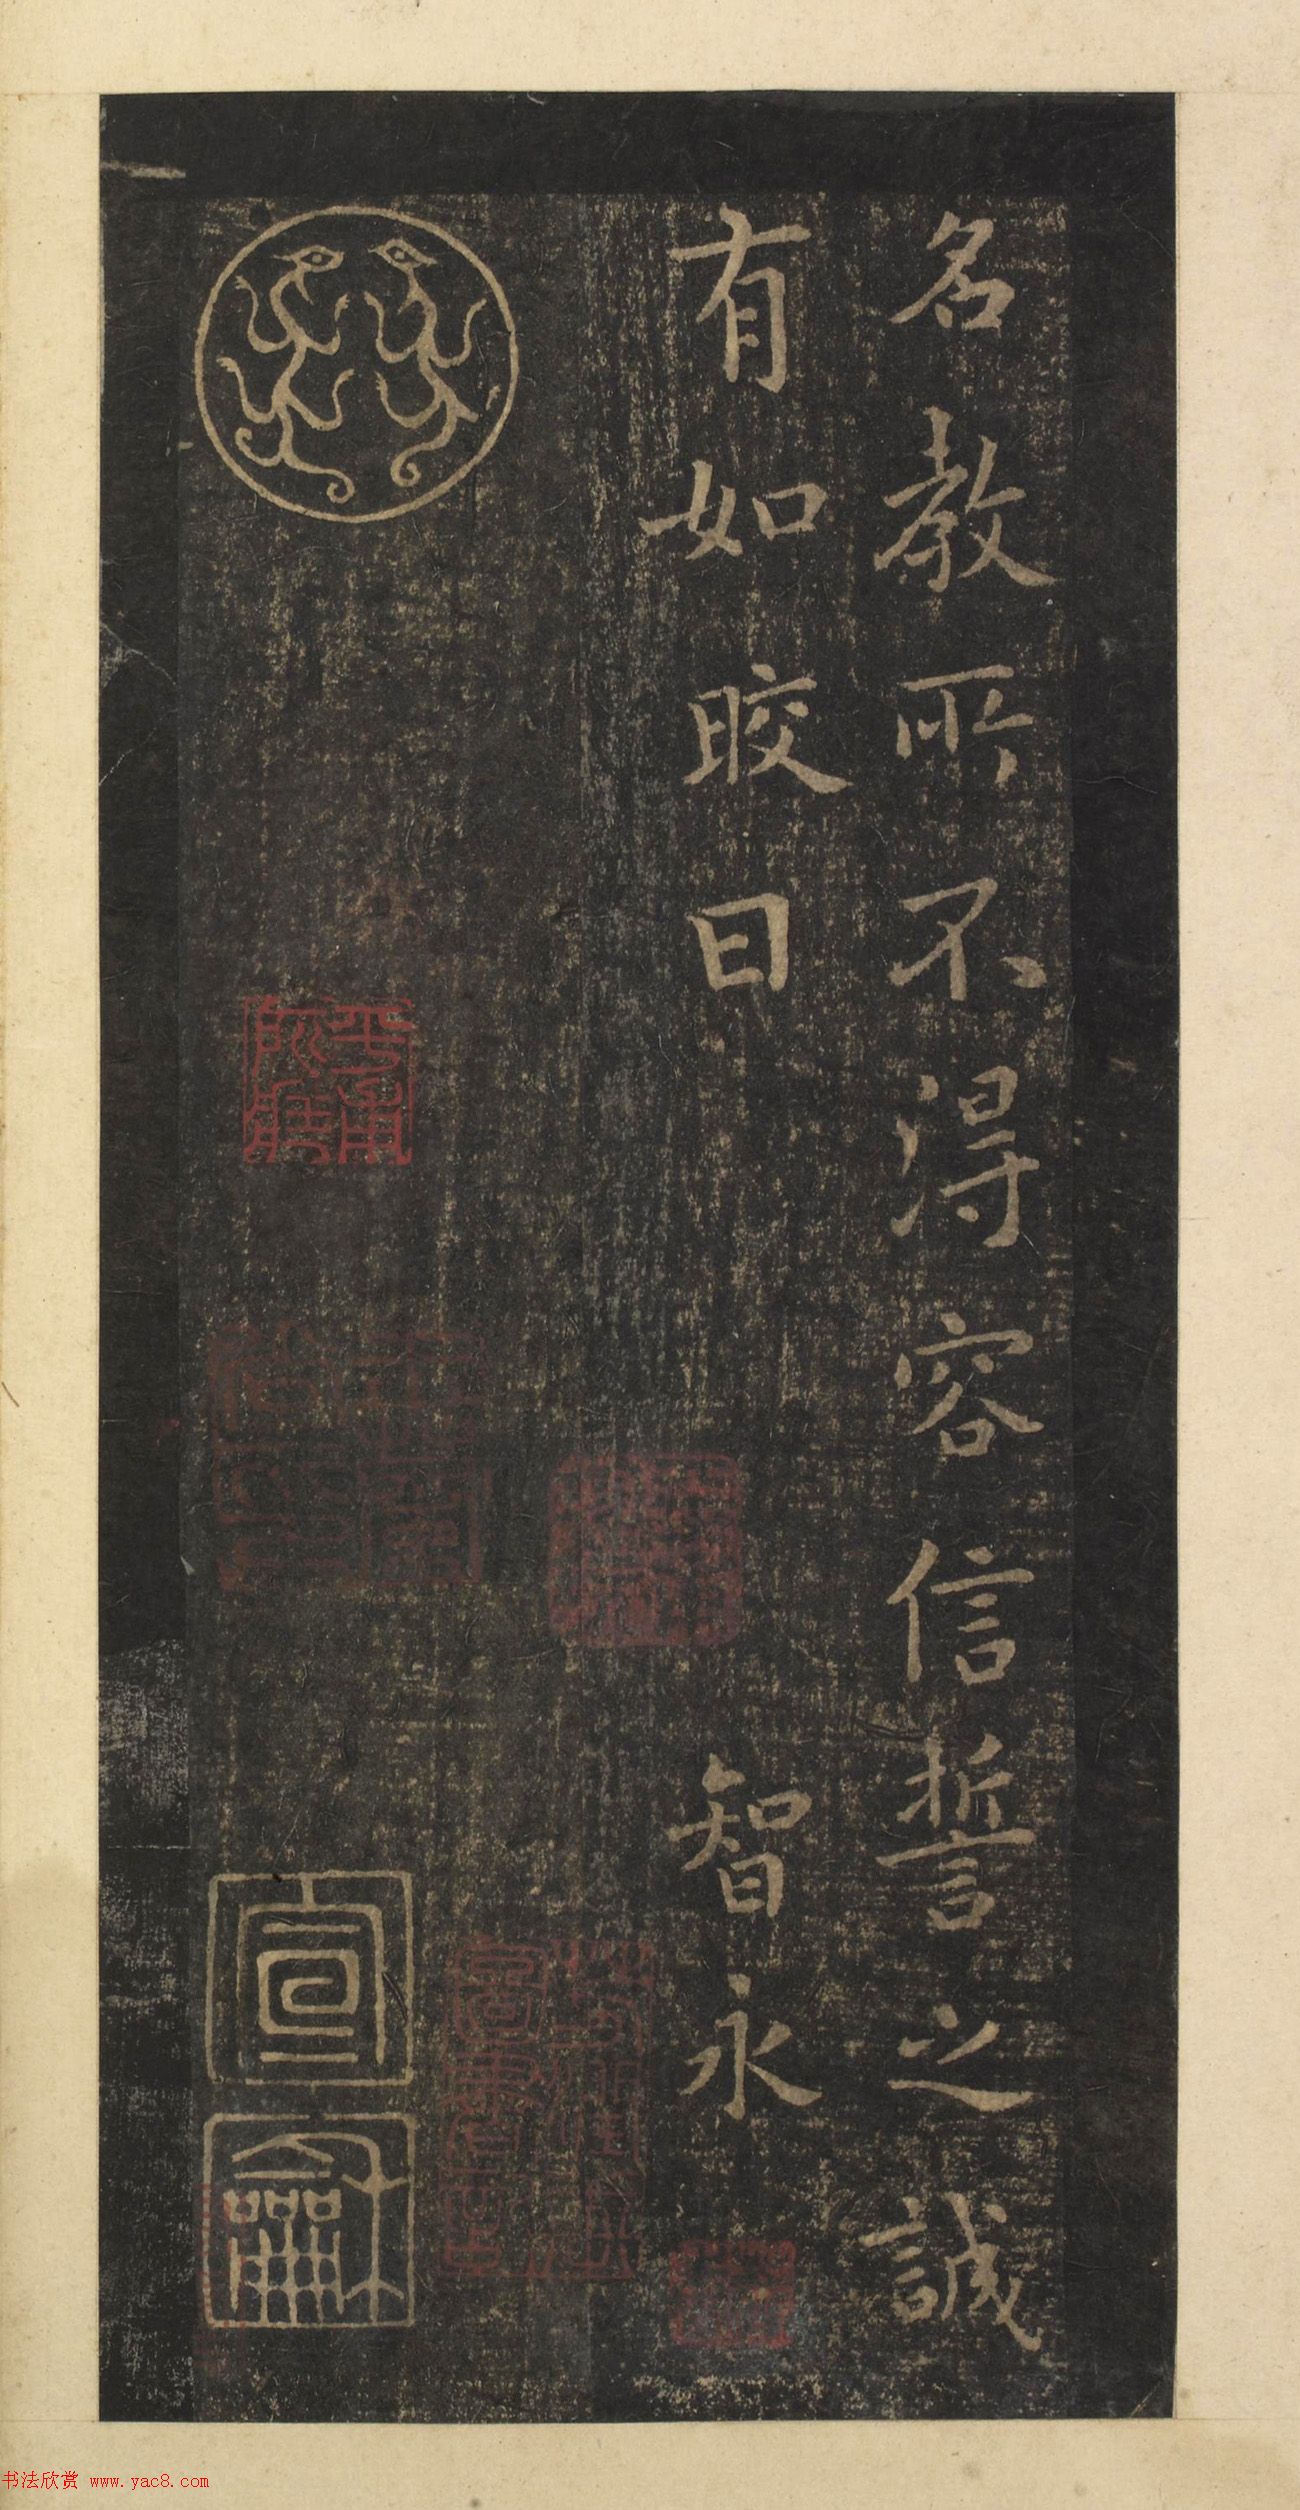 名教所不得容信誓之誠
有如晈日 智永
宣
龢
书法欣赏 www.yac8.com